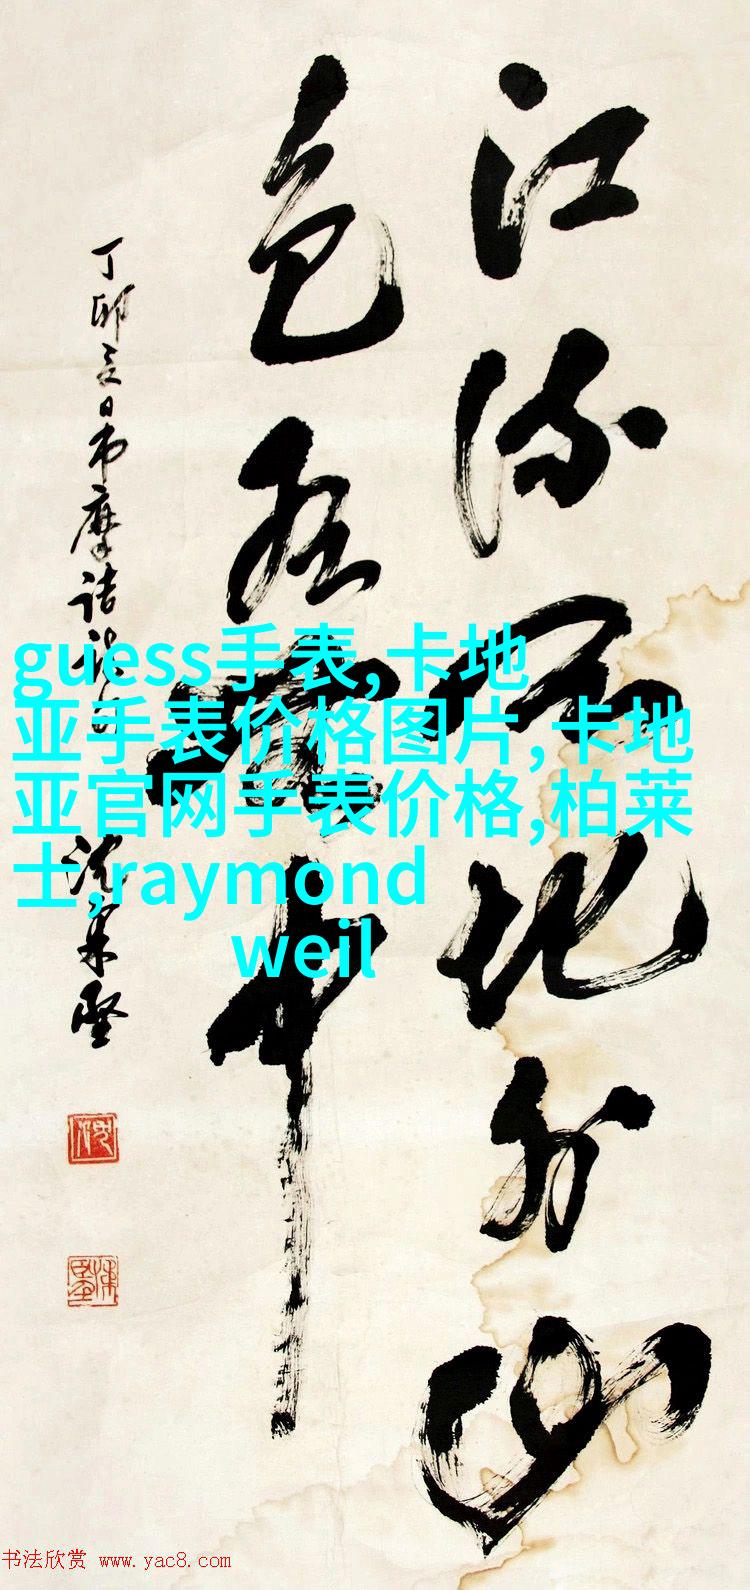 江流天地外山
色有無中
丁卯夏日书摩诘诗
guess手表,卡地
亚手表价格图片,卡地
亚官网手表价格,柏莱
士,raymond
weil
书法欣赏 www.yac8.com